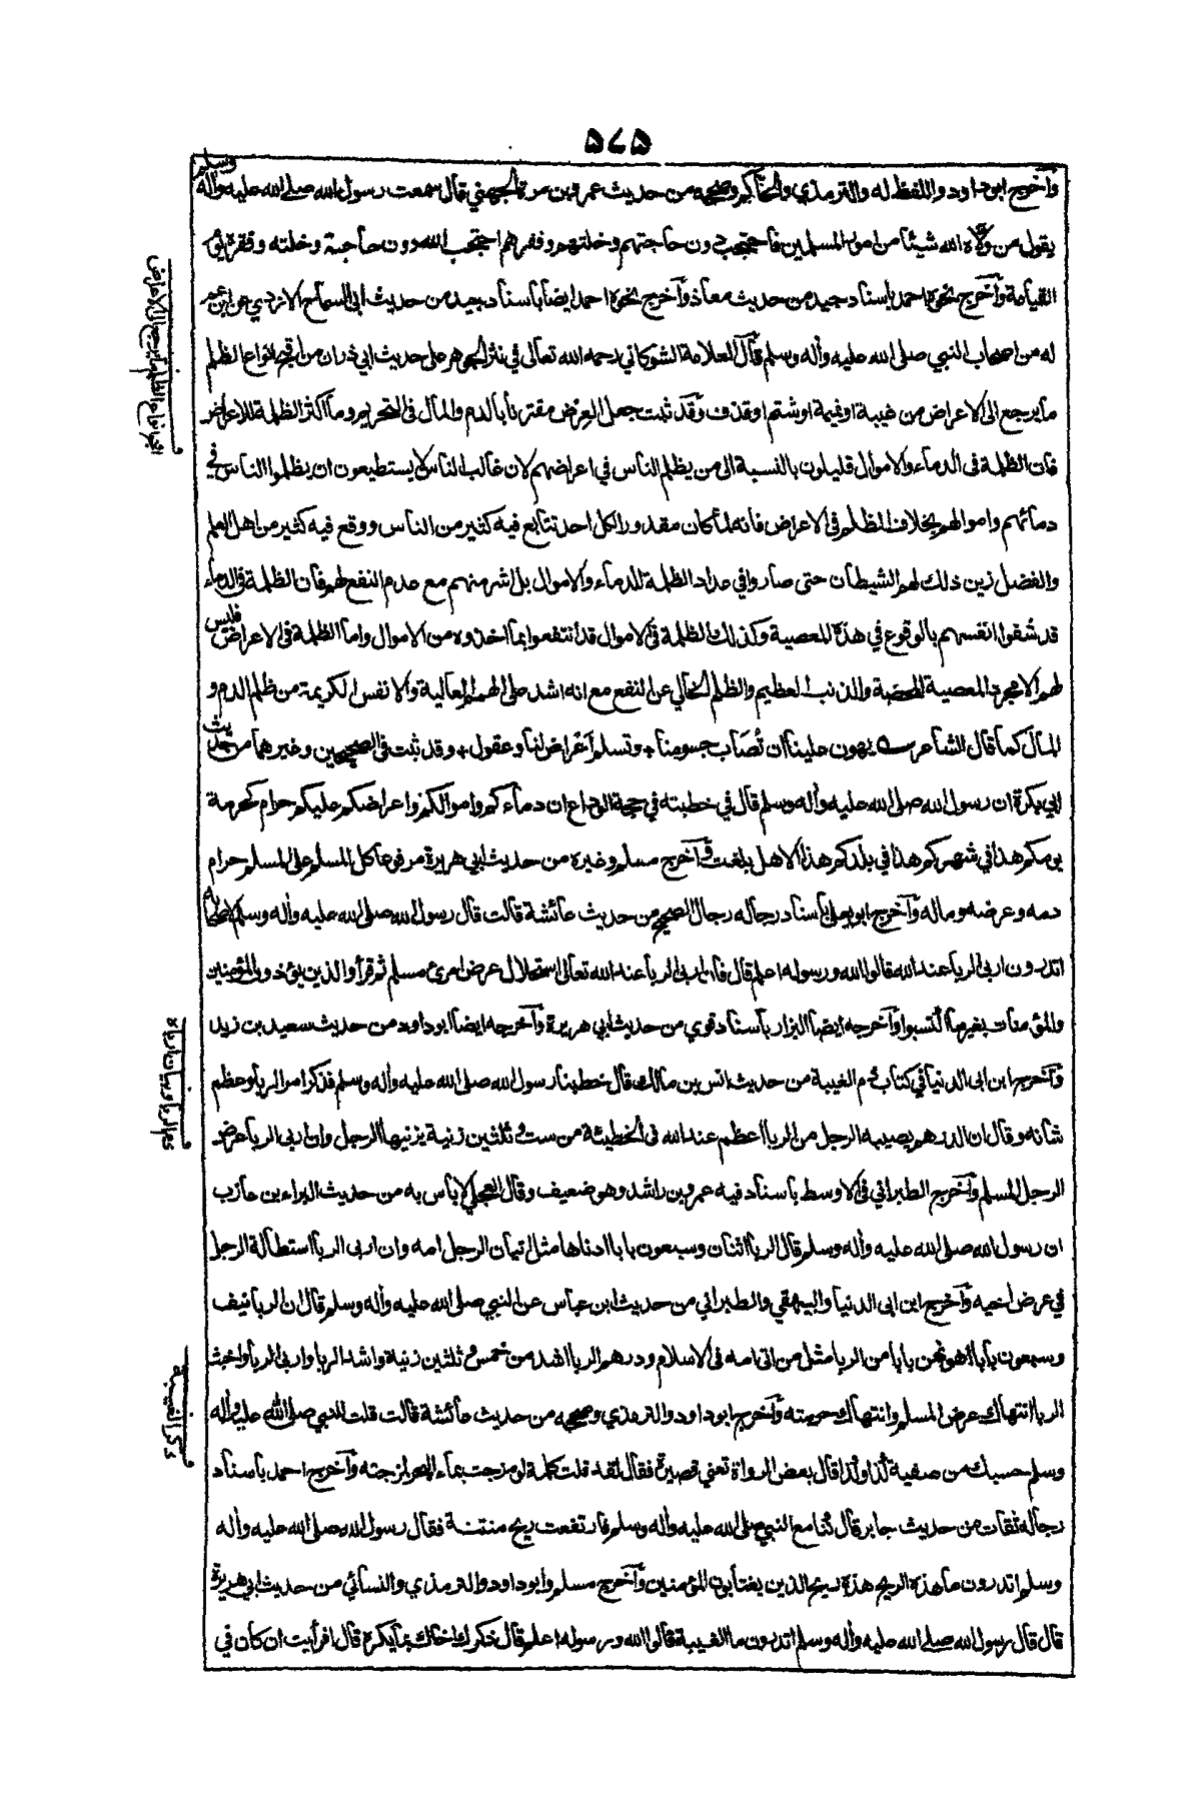 ٥٧٥
وأخرج ابو داود واللفظ له والترمذي والحاكم وصححه من حديث عمرو بن مرة الجهني قال سمعت رسول الله صلى الله عليه وأله وسلم
يقول من ولاه الله شيئا من امور المسلمين فاحتجب دون حاجتهم وخلتهم وفقرهم احتجب الله دون حاجبة وخلته وفقره يوم
القيامة وأخرج نحوه احمد باسناد جيد من حديث معاذ وأخرج نحوه احمد ايضا بأسناد جيد من حديث ابي السماح الازدي عن ابن عم
له من اصحاب النبي صلى الله عليه وأله وسلم قال العلامة الشوكاني رحمه الله تعالى في نثر الجوهر على حديث ابي ذر ان من اقبح انواع الظلم
ما يرجع الى الاعراض من غيبة او نميمة او شتم او قذف وقد ثبت جعل العرض مقترنا بالدم والمال فى التحريم وما اكثر الظلمة للاعراض
فان الظلمة فى الدماء والاموال قليلون بالنسبة الى من يظلم الناس في اعراضهم لان غالب الناس لا يستطيعون ان يظلموا الناس في
دمائهم واموالهم بخلاف الظلم فى الاعراض فانه لما كان مقدورا لكل احد تتابع فيه كثير من الناس ووقع فيه كثير من اهل العلم
والفضل زين ذلك لهم الشيطان حتى صاروا في عداد الظلمة للدماء والاموال بل اشر منهم مع عدم النفع لهم فان الظلمة فى الدماء
قد شفوا انفسهم بالوقوع في هذه المعصية وكذلك الظلمة فى الاموال قد انتفعوا بما اخذوه من الاموال واما الظلمة فى الاعراض فليس
لهم الا مجرد المعصية المحضة والذنب العظيم والظلم الخالي عن النفع مع انه اشد على الهمم العالية والانفس الكريمة من ظلم الدم و
المال كما قال الشاعر يهون علينا ان تُصَاب جسومنا + وتسلم أعراض لنا وعقول + وقد ثبت فى الصحيحين وغيرهما من حديث
ابي بكرة ان رسول الله صلى الله عليه وأله وسلم قال في خطبته في حجة الوداع ان دماءكم واموالكم واعراضكم عليكم حرام كحرمة
يومكم هذا في شهركم هذا في بلدكم هذا الا هل بلغت وأخرج مسلم وغيره من حديث ابي هريرة مرفوعا كل المسلم على المسلم حرام
دمه وعرضه وماله وأخرج ابو يعلى بأسناد رجاله رجال الصحيح من حديث عائشة قالت قال رسول الله صلى الله عليه وأله وسلم لاصحابه
اتدرون اربى الربا عند الله قالوا الله ورسوله اعلم قال فان اربى الربا عند الله تعالى استحلال عرض امرئ مسلم ثم قرأ والذين يؤذون المؤمنين
والمؤمنات بغير ما اكتسبوا وأخرجه ايضا البزار بأسناد قوي من حديث ابي هريرة وأخرجه ايضا ابو داود من حديث سعيد بن زيد
وأخرج ابن ابى الدنيا في كتاب ذم الغيبة من حديث انس بن مالك قال خطبنا رسول الله صلى الله عليه وأله وسلم فذكر امر الربا وعظم
شانه وقال ان الدرهم يصيبه الرجل من الربا اعظم عند الله فى الخطيئة من ست و ثلثين زنية يزنيها الرجل وان اربى الربا عرض
الرجل المسلم وأخرج الطبراني فى الاوسط بأسناد فيه عمرو بن راشد وهو ضعيف وقال العجلي لا بأس به من حديث البراء بن عازب
ان رسول الله صلى الله عليه وأله وسلم قال الربا اثنان وسبعون بابا ادناها مثل اتيان الرجل امه وان اربى الربا استطالة الرجل
في عرض اخيه وأخرج ابن ابى الدنيا والبيهقي والطبراني من حديث ابن عباس عن النبي صلى الله عليه وأله وسلم قال ان الربا نيف
وسبعون بابا اهونهن بابا من الربا مثل من اتى امه فى الاسلام ودرهم الربا اشد من خمس و ثلثين زنية واشد الربا واربى الربا واخبث
الربا انتهاك عرض المسلم وانتهاك حرمته وأخرج ابو داود والترمذي وصححه من حديث عائشة قالت قلت للنبي صلى الله عليه وأله
وسلم حسبك من صفية كذا وكذا قال بعض الرواة تعني قصيرة فقال لقد قلت كلمة لو مزجت بماء البحر لمزجته وأخرج احمد بأسناد
رجاله ثقات من حديث جابر قال كنا مع النبي صلى الله عليه وأله وسلم فارتفعت ريح منتنة فقال رسول الله صلى الله عليه وأله
وسلم اتدرون ما هذه الريح هذه ريح الذين يغتابون المؤمنين وأخرج مسلم وابو داود والترمذي والنسائي من حديث ابي هريرة
قال قال رسول الله صلى الله عليه وأله وسلم اتدرون ما الغيبة قالوا الله ورسوله اعلم قال ذكرك اخاك بما يكره قال افرأيت ان كان في
ذكر الغيبة